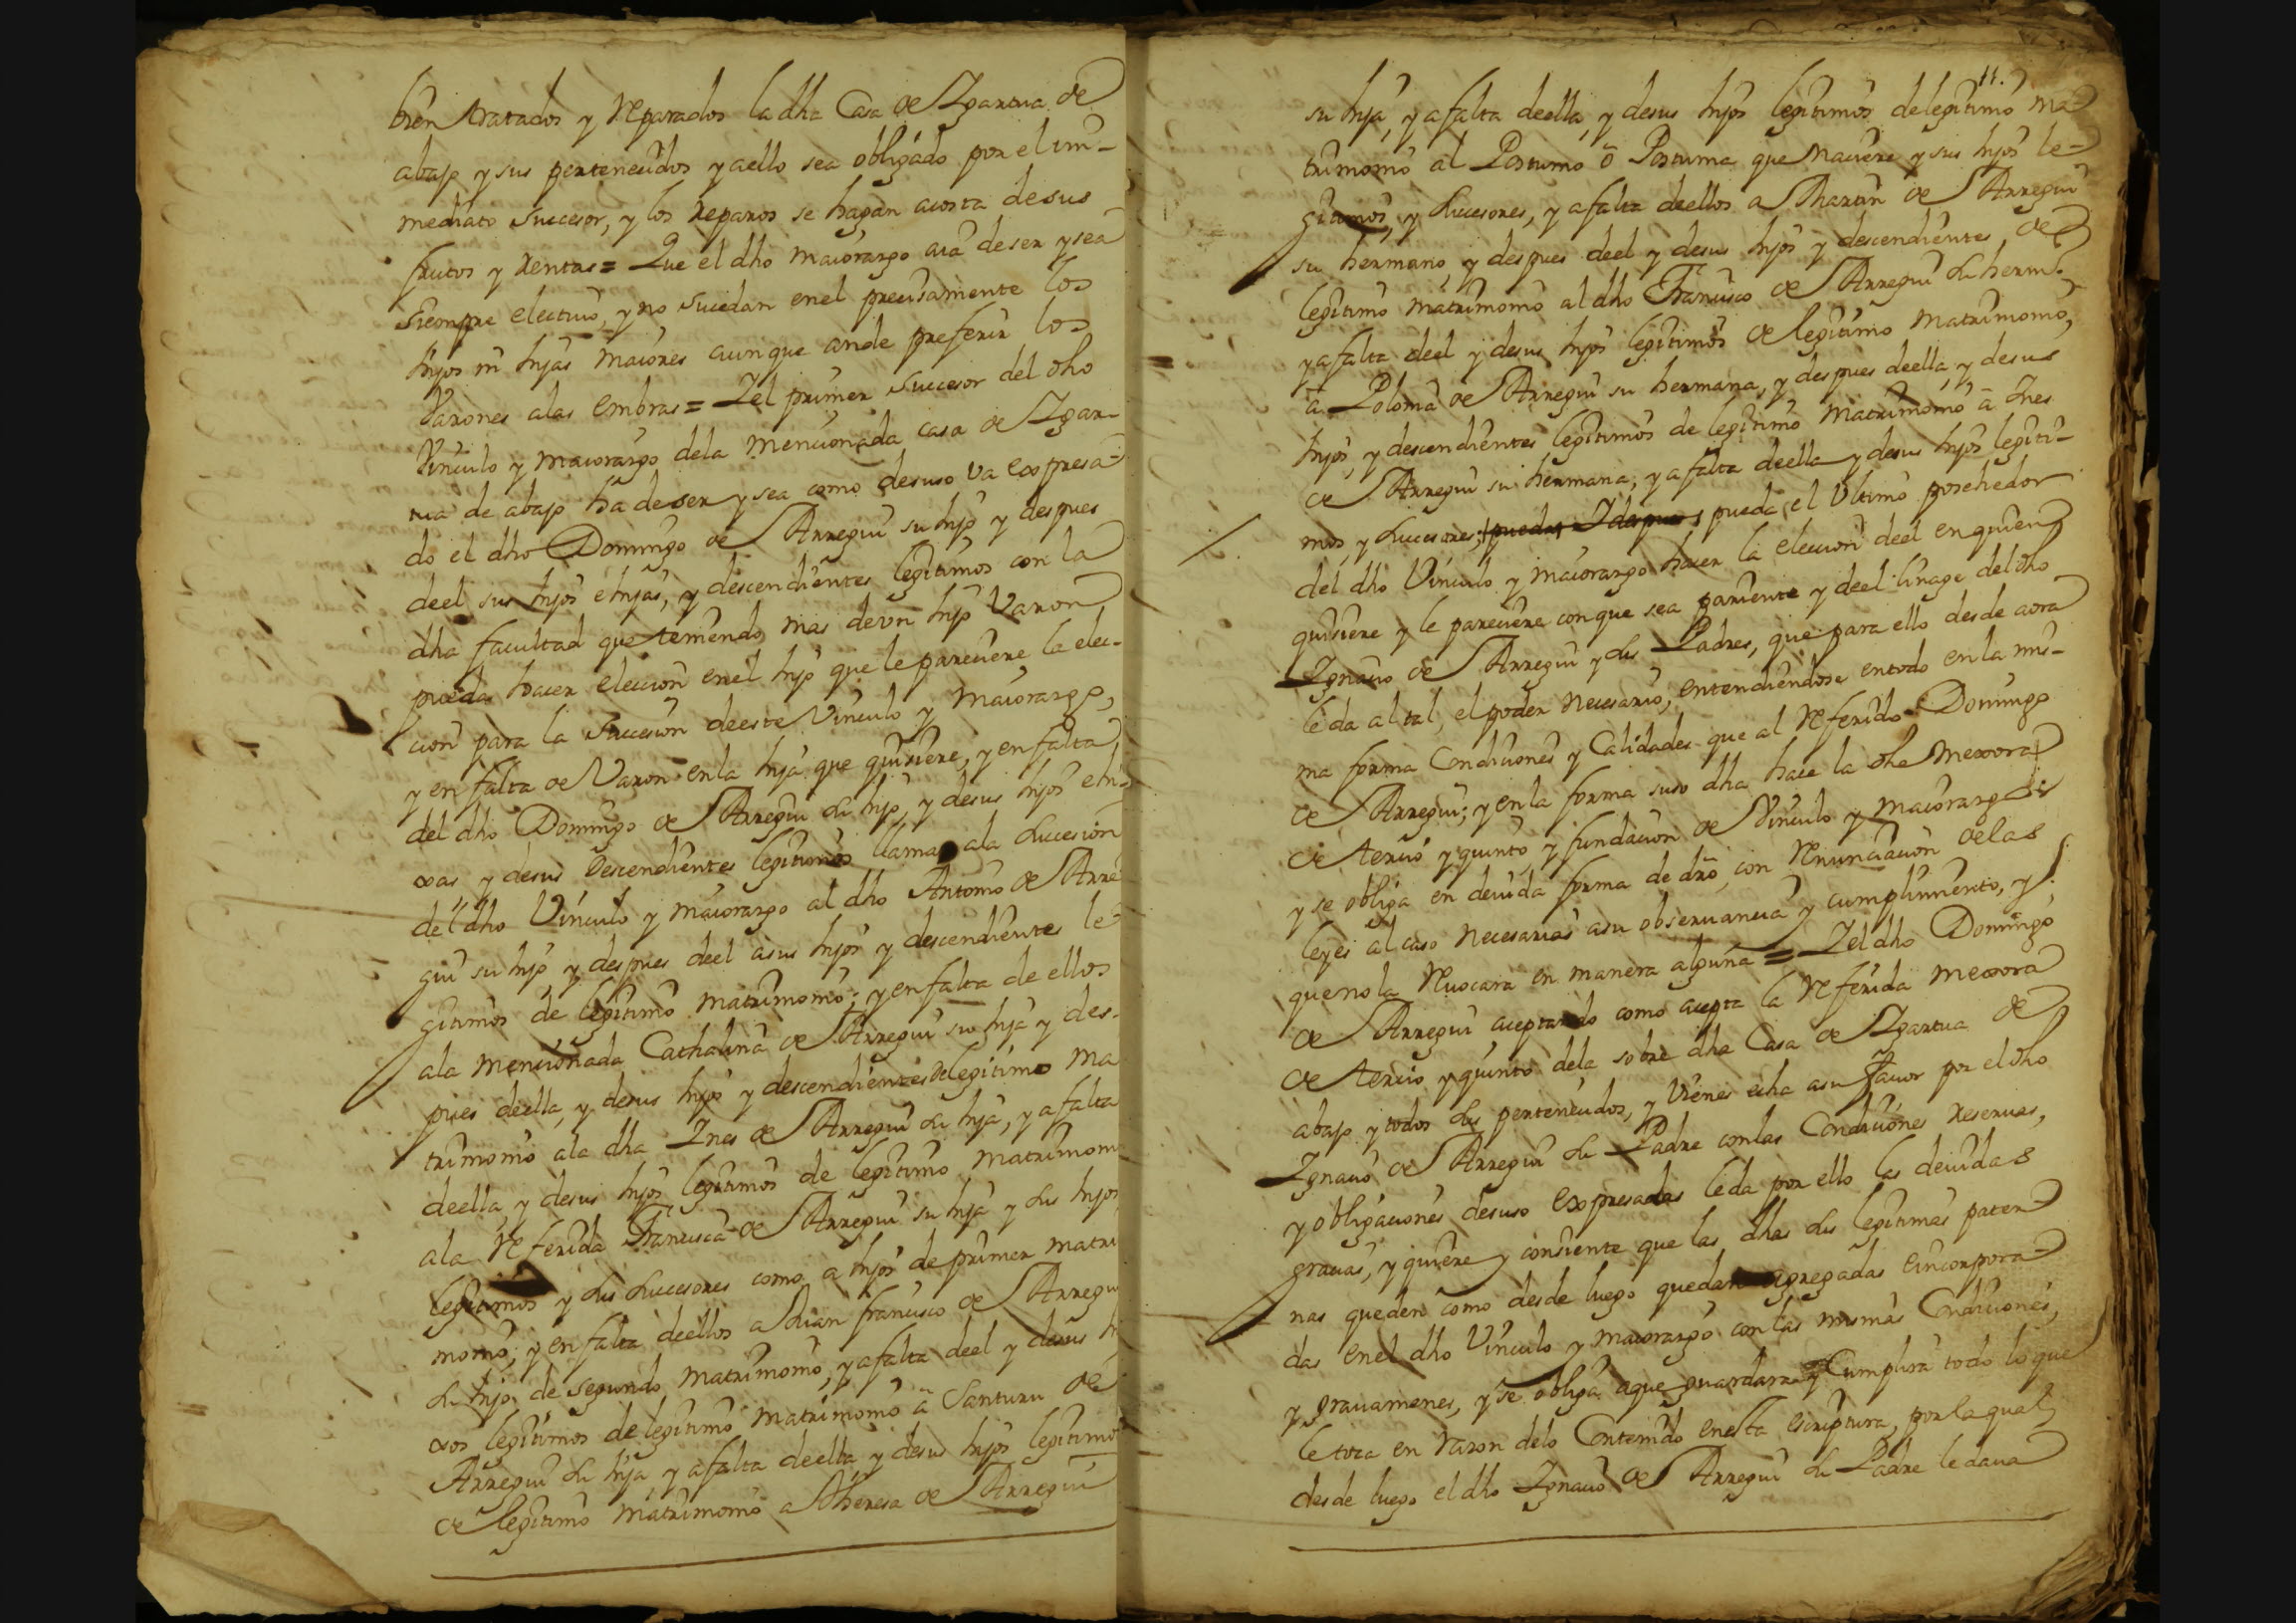 bien tratados y Reparados la dha Casa de Ygartua de
abajo y sus pertenecidos y aello sea obligado por el im-
mediato Succesor, y los reparos se hagan acosta desus
frutos y rentas = Que el dho maiorazgo aia deser y sea
siempre electiuo, y no sucedan enel precisamente los
hijos ni hijas maiores aunque ande preferir los
Varones alas embras = Y el primer Succesor del dho
Vinculo y maiorazgo dela mencionada casa de Ygar-
tua de abajo ha deser y sea como desuso va expresa-
do el dho Domingo de Arregui su hijo y despues
deel sus hijos e hijas, y descendientes legitimos con la
dha facultad que teniendo mas deun hijo Varon
pueda hacer eleccion enel hijo que le pareciere la elec-
cion para la Succesion deeste Vinculo y maiorazgo,
y en falta de Varon enla hija que quisiere, y en falta
del dho Domingo de Arregui su hijo, y desus hijos e hi-
xas y desus Descendientes legitimos llama ala succesion
del dho Vinculo y maiorazgo al dho Antonio de Arre-
gui su hijo, y despues deel asus hijos y descendientes le-
gitimos de legitimo matrimonio; y en falta de ellos
ala mencionada Cathalina de Arregui su hija y des-
pues deella, y desus hijos y descendientes de legitimo ma
trimonio ala dha Ynes de Arregui su hija, y afalta
deella, y desus hijos legitimos de legitimo matrimoni
ala Referida Francisca de Arregui su hija y sus hijos
legitimos y sus succesores como a hijos de primer matri
monio; y en falta deellos a Juan francisco de Arregui
su hijo de segundo matrimonio, y afalta deel y desus hi
xos legitimos de legitimo matrimonio â Santuru de
Arregui su hija, y afalta deella, y desus hijos legitimo
de legitimo matrimonio a Theresa de Arregui
11.
su hija, y afalta deella, y desus hijos legitimos delegitimo ma
trimonio al Postumo ô Postuma que naciere y sus hijos le-
gitimos, y succesores, y afalta deellos a Martin de Arregui
su hermano, y despues deel y desus hijos y descendientes, de
legitimo matrimonio al dho Francisco de Arregui su herm.o
y afalta deel y desus hijos legitimos de legitimo matrimonio,
â Polonia de Arregui su hermana, y despues deella, y desus
hijos, y descendientes legitimos de legitimo matrimonio â Ynes
de Arregui su hermana, y afalta deella y desus hijos legiti-
mos, y succesores, pueda, Y despues, pueda, el Vltimo posehedor
del dho Vinculo y maiorazgo hacer la eleccion deel en quien
quisiere y le pareciere conque sea pariente y deel linage del dho
Ygnacio de Arregui y sus Padres, que para ello desde aora
le da al tal, el poder necesario, entendiendose entodo en la mis-
ma forma Condiciones y Calidades que al Referido Domingo
de Arregui; y en la forma suso dha hace la dha mexora
de tercio y quinto, y fundacion de Vinculo y maiorazgo
y se obliga en deuida forma de dro, con Renunciacion delas
leyes al caso necesarias asu obseruancia y cumplimiento, y
que no la Reuocara en manera alguna = Y el dho Domingo
de Arregui aceptando como acepta la Referida mexora
de tercio y quinto dela sobre dha Casa de Ygartua de
abajo y todos sus pertenecidos, y Vienes echa asu fauor por el dho
Ygnacio de Arregui su Padre con las Condiciones reseruas,
y obligaciones desuso expresadas leda por ello las deuidas
gracias, y quiere y consiente que las dhas sus legitimas pater
nas queden como desde luego quedan agregadas e incorpora-
das enel dho Vinculo y maiorazgo con las mismas Condiciones,
y grauamenes, y se obliga aque guardara y Cumplira todo lo que
le toca en razon delo Contenido enesta escriptura, por la qual
desde luego el dho Ygnacio de Arregui su Padre le daua